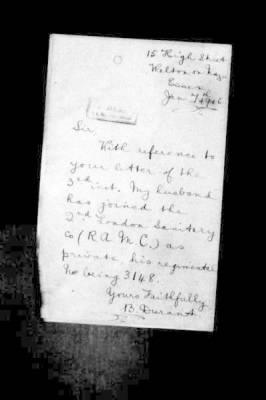 15 High Street
Walton on Naze
Essex
Jan 7th 1916
Sir,
With reference to
your letter of the
3rd inst. My husband
has joined the
2nd London Sanitary
Co (R.A.M.C.) as
private, his regimental
No being 3148.
Yours Faithfully
B. Durant.